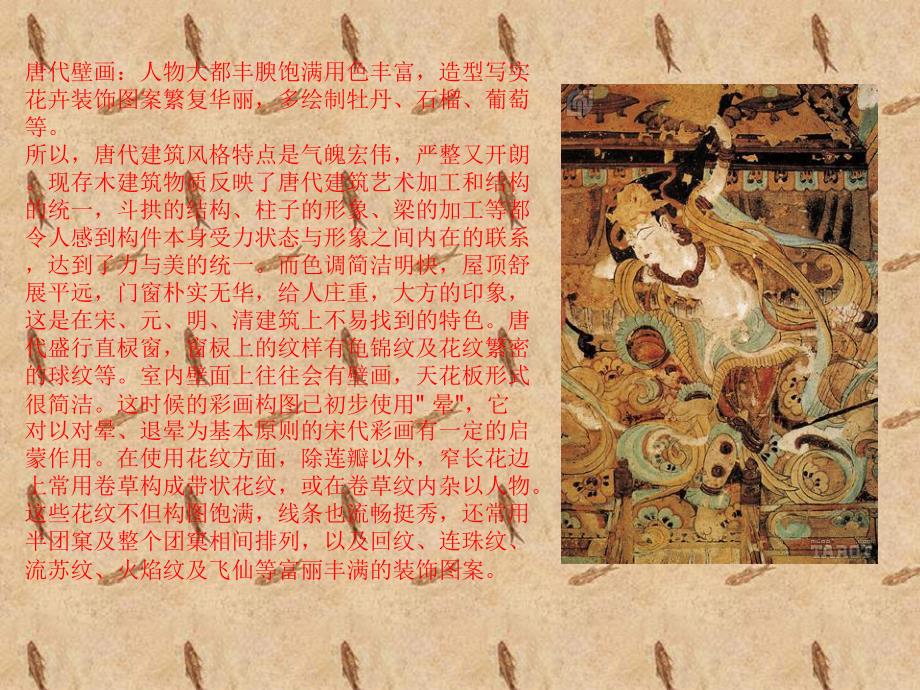 唐代壁画：人物大都丰腴饱满用色丰富，造型写实
花卉装饰图案繁复华丽，多绘制牡丹、石榴、葡萄
等。
所以，唐代建筑风格特点是气魄宏伟，严整又开朗
。现存木建筑物质反映了唐代建筑艺术加工和结构
的统一，斗拱的结构、柱子的形象、梁的加工等都
令人感到构件本身受力状态与形象之间内在的联系
，达到了力与美的统一。而色调简洁明快，屋顶舒
展平远，门窗朴实无华，给人庄重，大方的印象，
这是在宋、元、明、清建筑上不易找到的特色。唐
代盛行直棂窗，窗棂上的纹样有龟锦纹及花纹繁密
的球纹等。室内壁面上往往会有壁画，天花板形式
很简洁。这时候的彩画构图已初步使用" 晕"，它
对以对晕、退晕为基本原则的宋代彩画有一定的启
蒙作用。在使用花纹方面，除莲瓣以外，窄长花边
上常用卷草构成带状花纹，或在卷草纹内杂以人物。
这些花纹不但构图饱满，线条也流畅挺秀，还常用
半团窠及整个团窠相间排列，以及回纹、连珠纹、
流苏纹、火焰纹及飞仙等富丽丰满的装饰图案。
TAROT